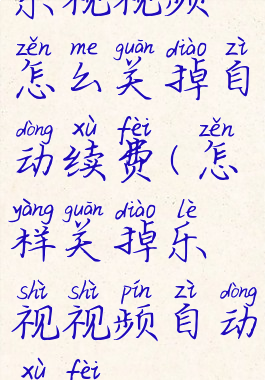 乐视视频
zěn me guān diào zì
怎么关掉自
dòng xù fèi zěn
动续费(怎
yàng guān diào lè
样关掉乐
shì shì pín zì dòng
视视频自动
xù fèi